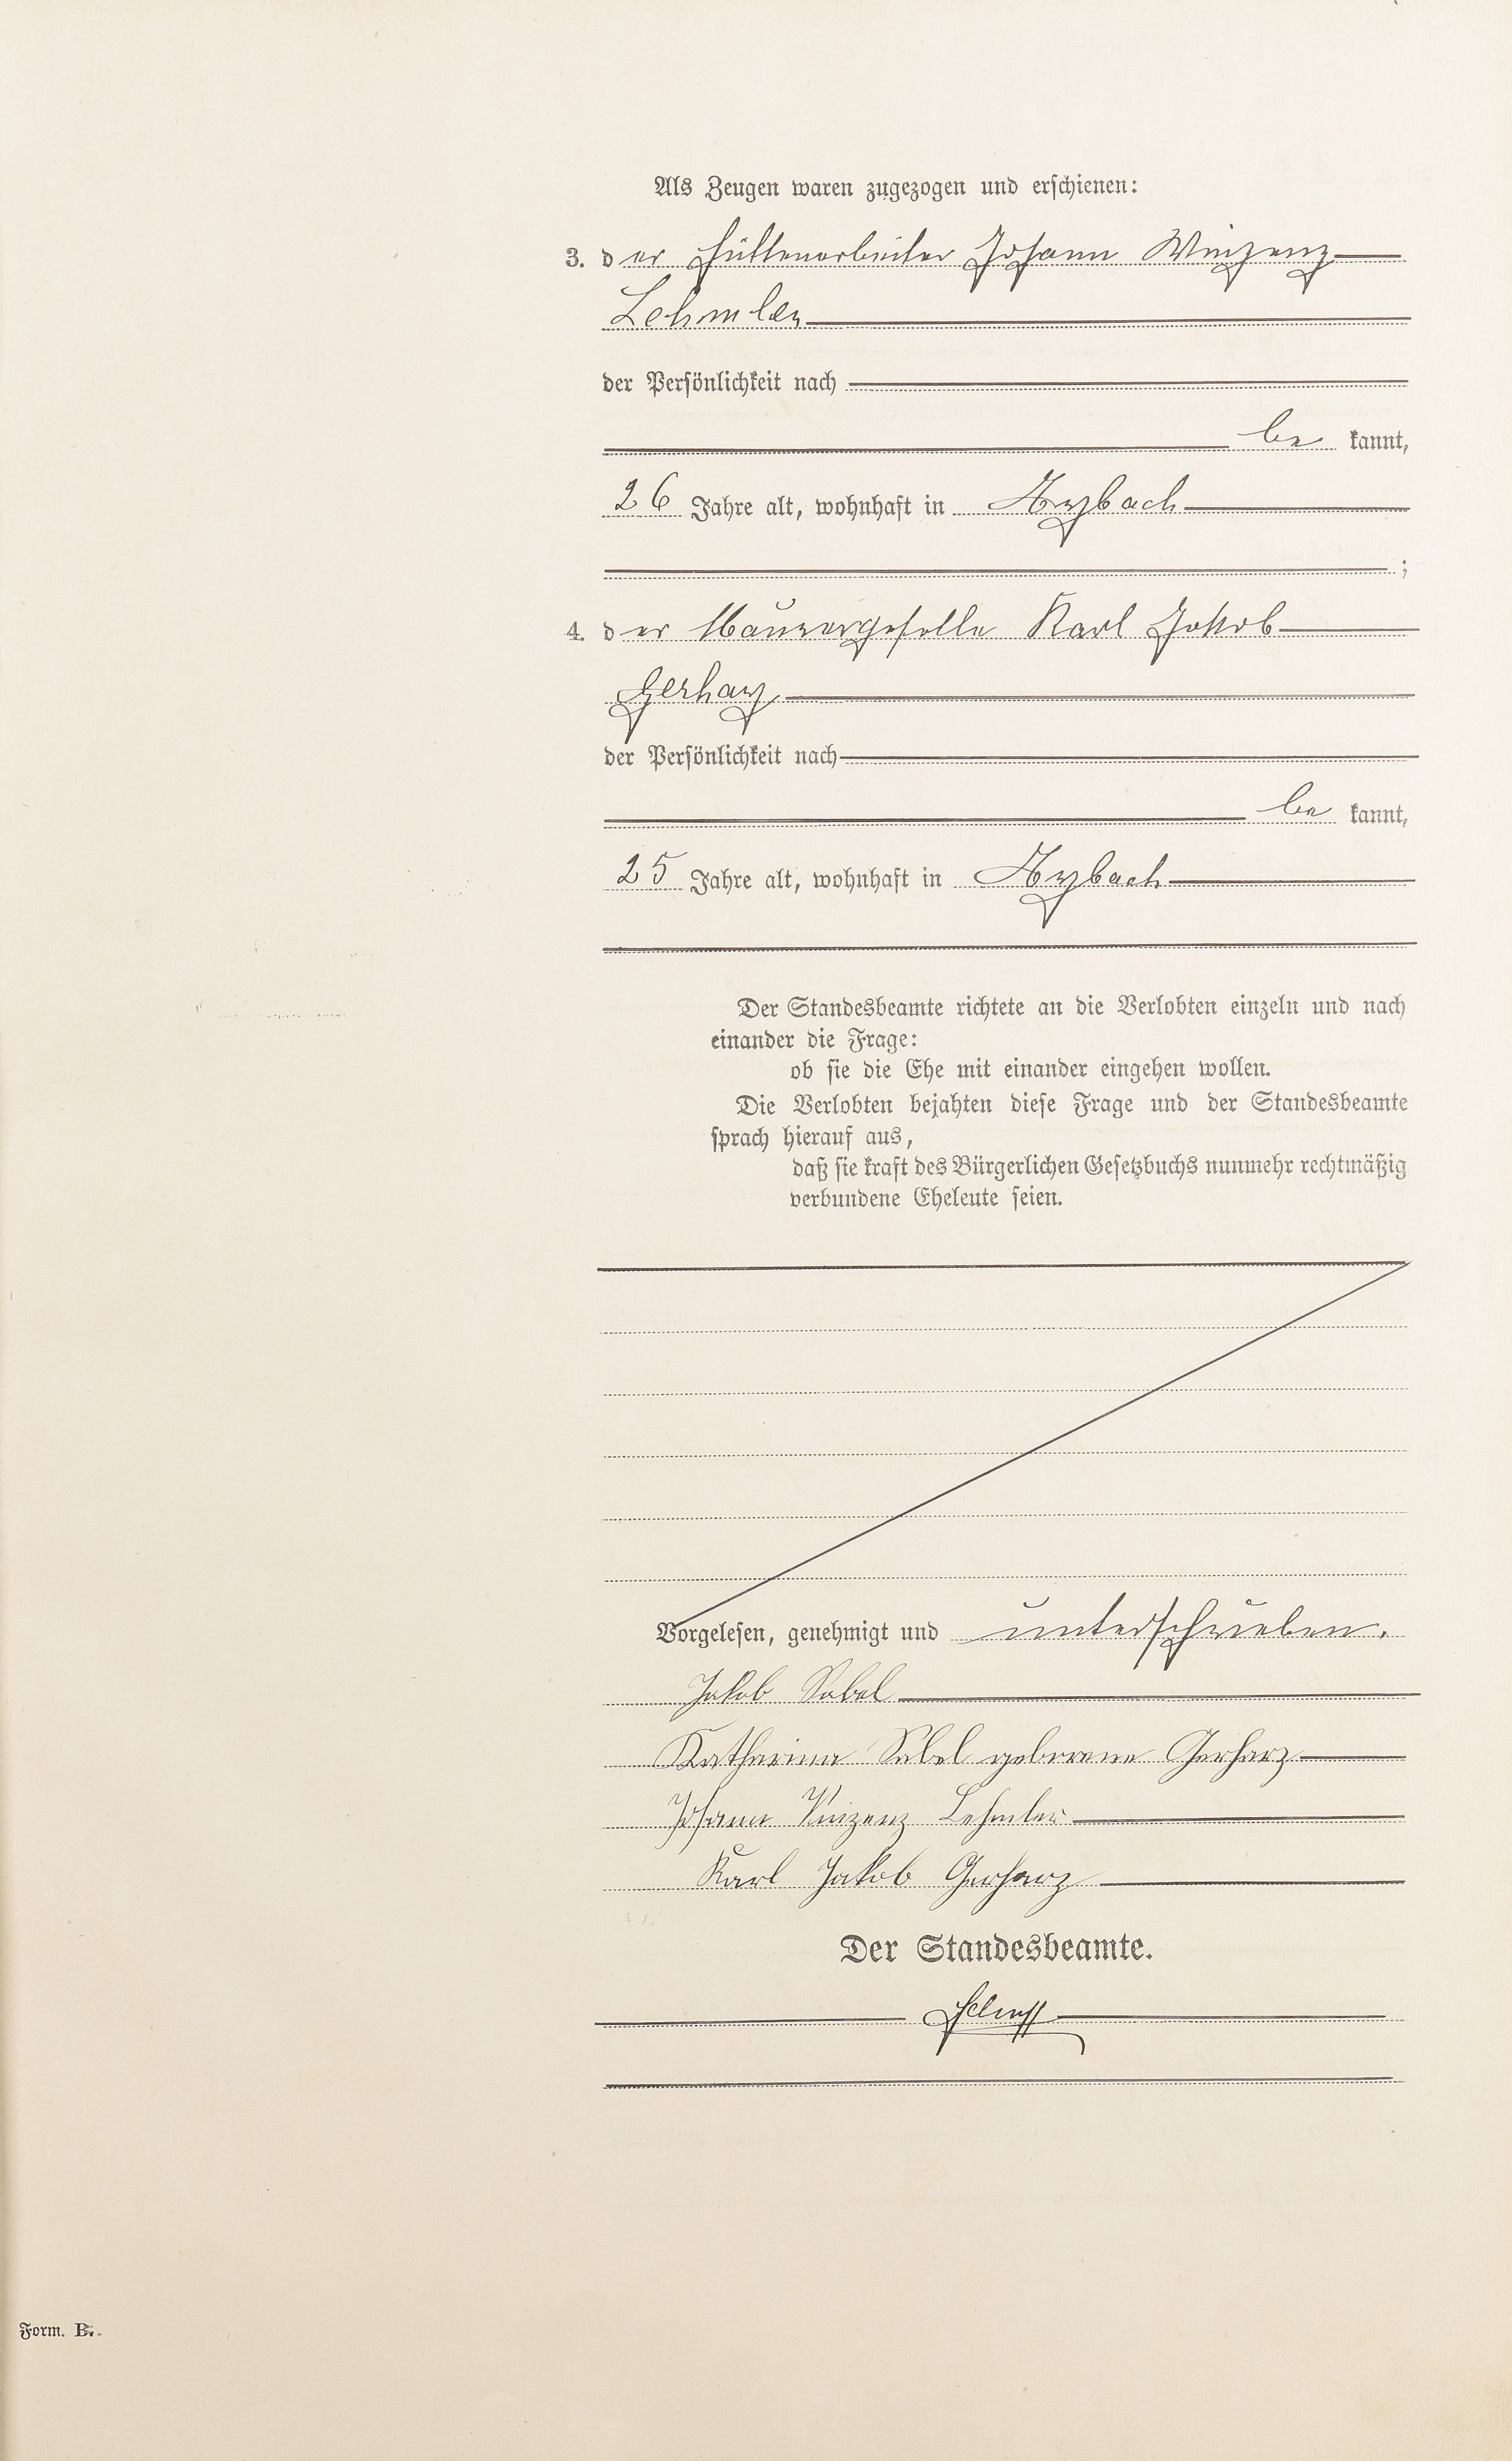 Als Zeugen waren zugezogen und erschienen:
3. der Hüttenarbeiter Johann Winzenz
Lehmler
der Persönlichkeit nach
be kannt,
26 Jahre alt, wohnhaft in Arzbach
;
4. der Maurergeselle Karl Jakob
Gerharz
der Persönlichkeit nach
be kannt,
25 Jahre alt, wohnhaft in Arzbach
Der Standesbeamte richtete an die Verlobten einzeln und nach
einander die Frage:
ob sie die Ehe mit einander eingehen wollen.
Die Verlobten bejahten diese Frage und der Standesbeamte
sprach hierauf aus,
daß sie kraft des Bürgerlichen Gesetzbuchs nunmehr rechtmäßig
verbundene Eheleute seien.
Vorgelesen, genehmigt und unterschrieben.
Jakob Sabel
Katharina Sabel geborene Gerharz
Johann Vinzenz Lehmler
Karl Jakob Gerharz
Der Standesbeamte.
Form. B.